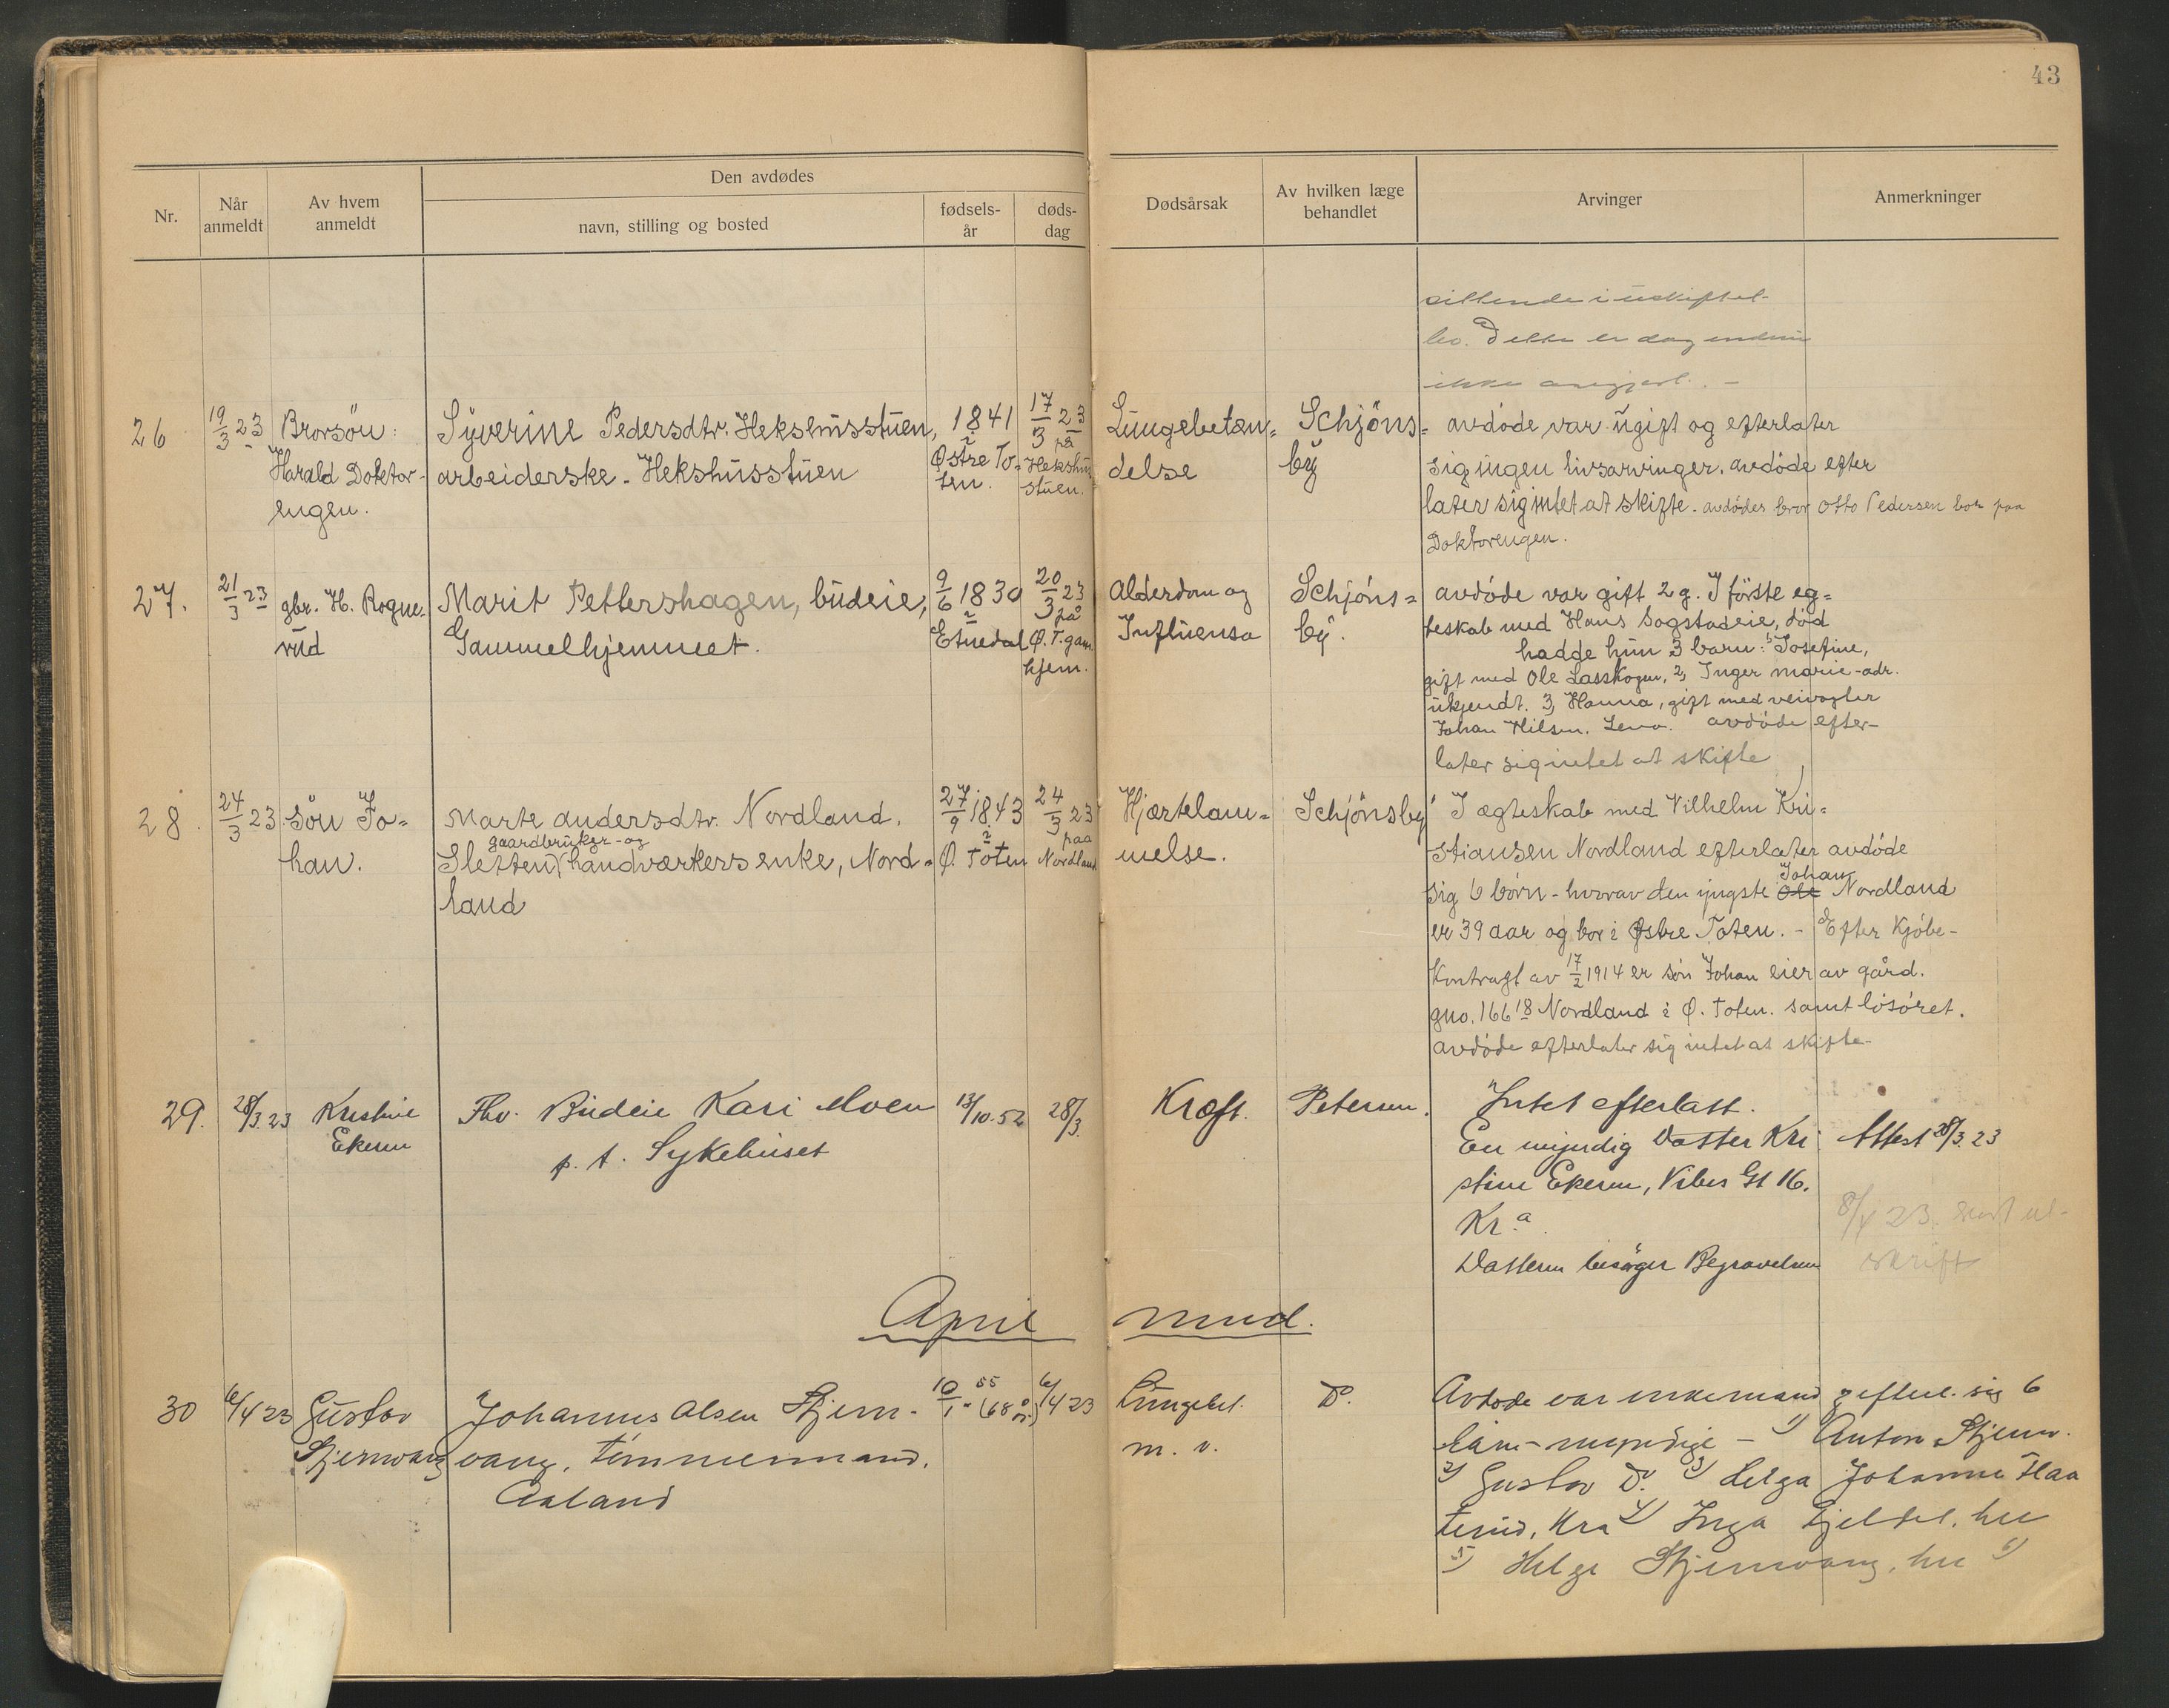 43
Nr.
Når anmeldt
Av hvem anmeldt
Den avdødes
navn, stilling og bosted
fødsels- år
døds- dag
Dødsårsak
Av hvilken læge behandlet
Arvinger
Anmerkninger
sittende i uskiftet
bo. Dette er dog endnu
ikke
26
19/3 23
Brorsön:
Harald Doktor-
engen.
Syverine Pedersdtr. Hekshusstuen,
arbeiderske - Hekshusstuen
1841
i
Østre To-
ten.
17/3 23
på
Hekshus
stuen.
Lungebetæn=
delse
Schjöns=
by
avdöde var ugift og efterlater
sig ingen livsarvinger. avdöde efter
later sig intet at skifte. avdödes bror Otto Pedersen bor paa
Doktorengen.
27.
21/3 23
gbr. H. Rogne-
rud
Marit Pettershagen, budeie,
Gammelhjemmet.
9/6 1830
i
Etnedal
20/3 23
på
Ø. T. gam.
hjem.
Alderdom og
Influensa
Schjöns=
by.
avdöde var gift 2 g. I förste eg=
teskab med Hans Sogstadeie, död
hadde hun 3 barn: 1) Josefine,
gift med Ole Lasskogen, 2) Inger Marie - adr.
ukjendt. 3) Hanna, gift med veivogter
Johan Nilsen. Lena. avdöde efter-
later sig intet at skifte
28.
24/3 23.
sön Jo=
han.
Marte Andersdtr. Nordland.
gaardbruker- og
Sletten, handværkers enke, Nord=
land
27/9 1843
i
Ø. Toten
24/3 23
paa
Nordland
Hjærtelam=
melse.
Schjönsby
I ægteskab med Vilhelm Kri=
stiansen Nordland efterlater avdöde
Johan
sig 6 börn - hvorav den yngste Ole Nordland
er 39 aar og bor i Østre Toten. - Efter Kjöbe-
kontragt av 17/2 1914 er sön Johan eier av gård.
gno. 166 18 Nordland i Ø. Toten. samt lösöret.
avdöde efterlater sig intet at skifte.
29.
28/3. 23
Kristine
Ekeren
Fhv. Budeie Kari Moen
p. t. Sykehuset
13/10. 52
28/3.
Kræft.
Petersen.
Intet efterlatt.
En myndig Datter Kri
stine Ekeren, Vibes Gt 16.
Kr.a
Datteren besörger Begravelsen
Attest 28/3. 23
8/4 23. sendt ut-
skrift
April mnd.
30
6/4 23
Gustov
Stjernvang
Johannes Olsen Stjern-
vang, tömmermand.
Aaland
10/1 - 55
(68 år)
6/4 23
Lungebet.
m. v.
Do.
Avdöde var enkemand & efterl. sig 6
barn - myndige - 1) Anton Stjernv.
2) Gustov Do. 3) Helga Johanne Flaa
terud, Kra 4) Inga Fjeldst. her
5) Helge Stjernvang, her 6)